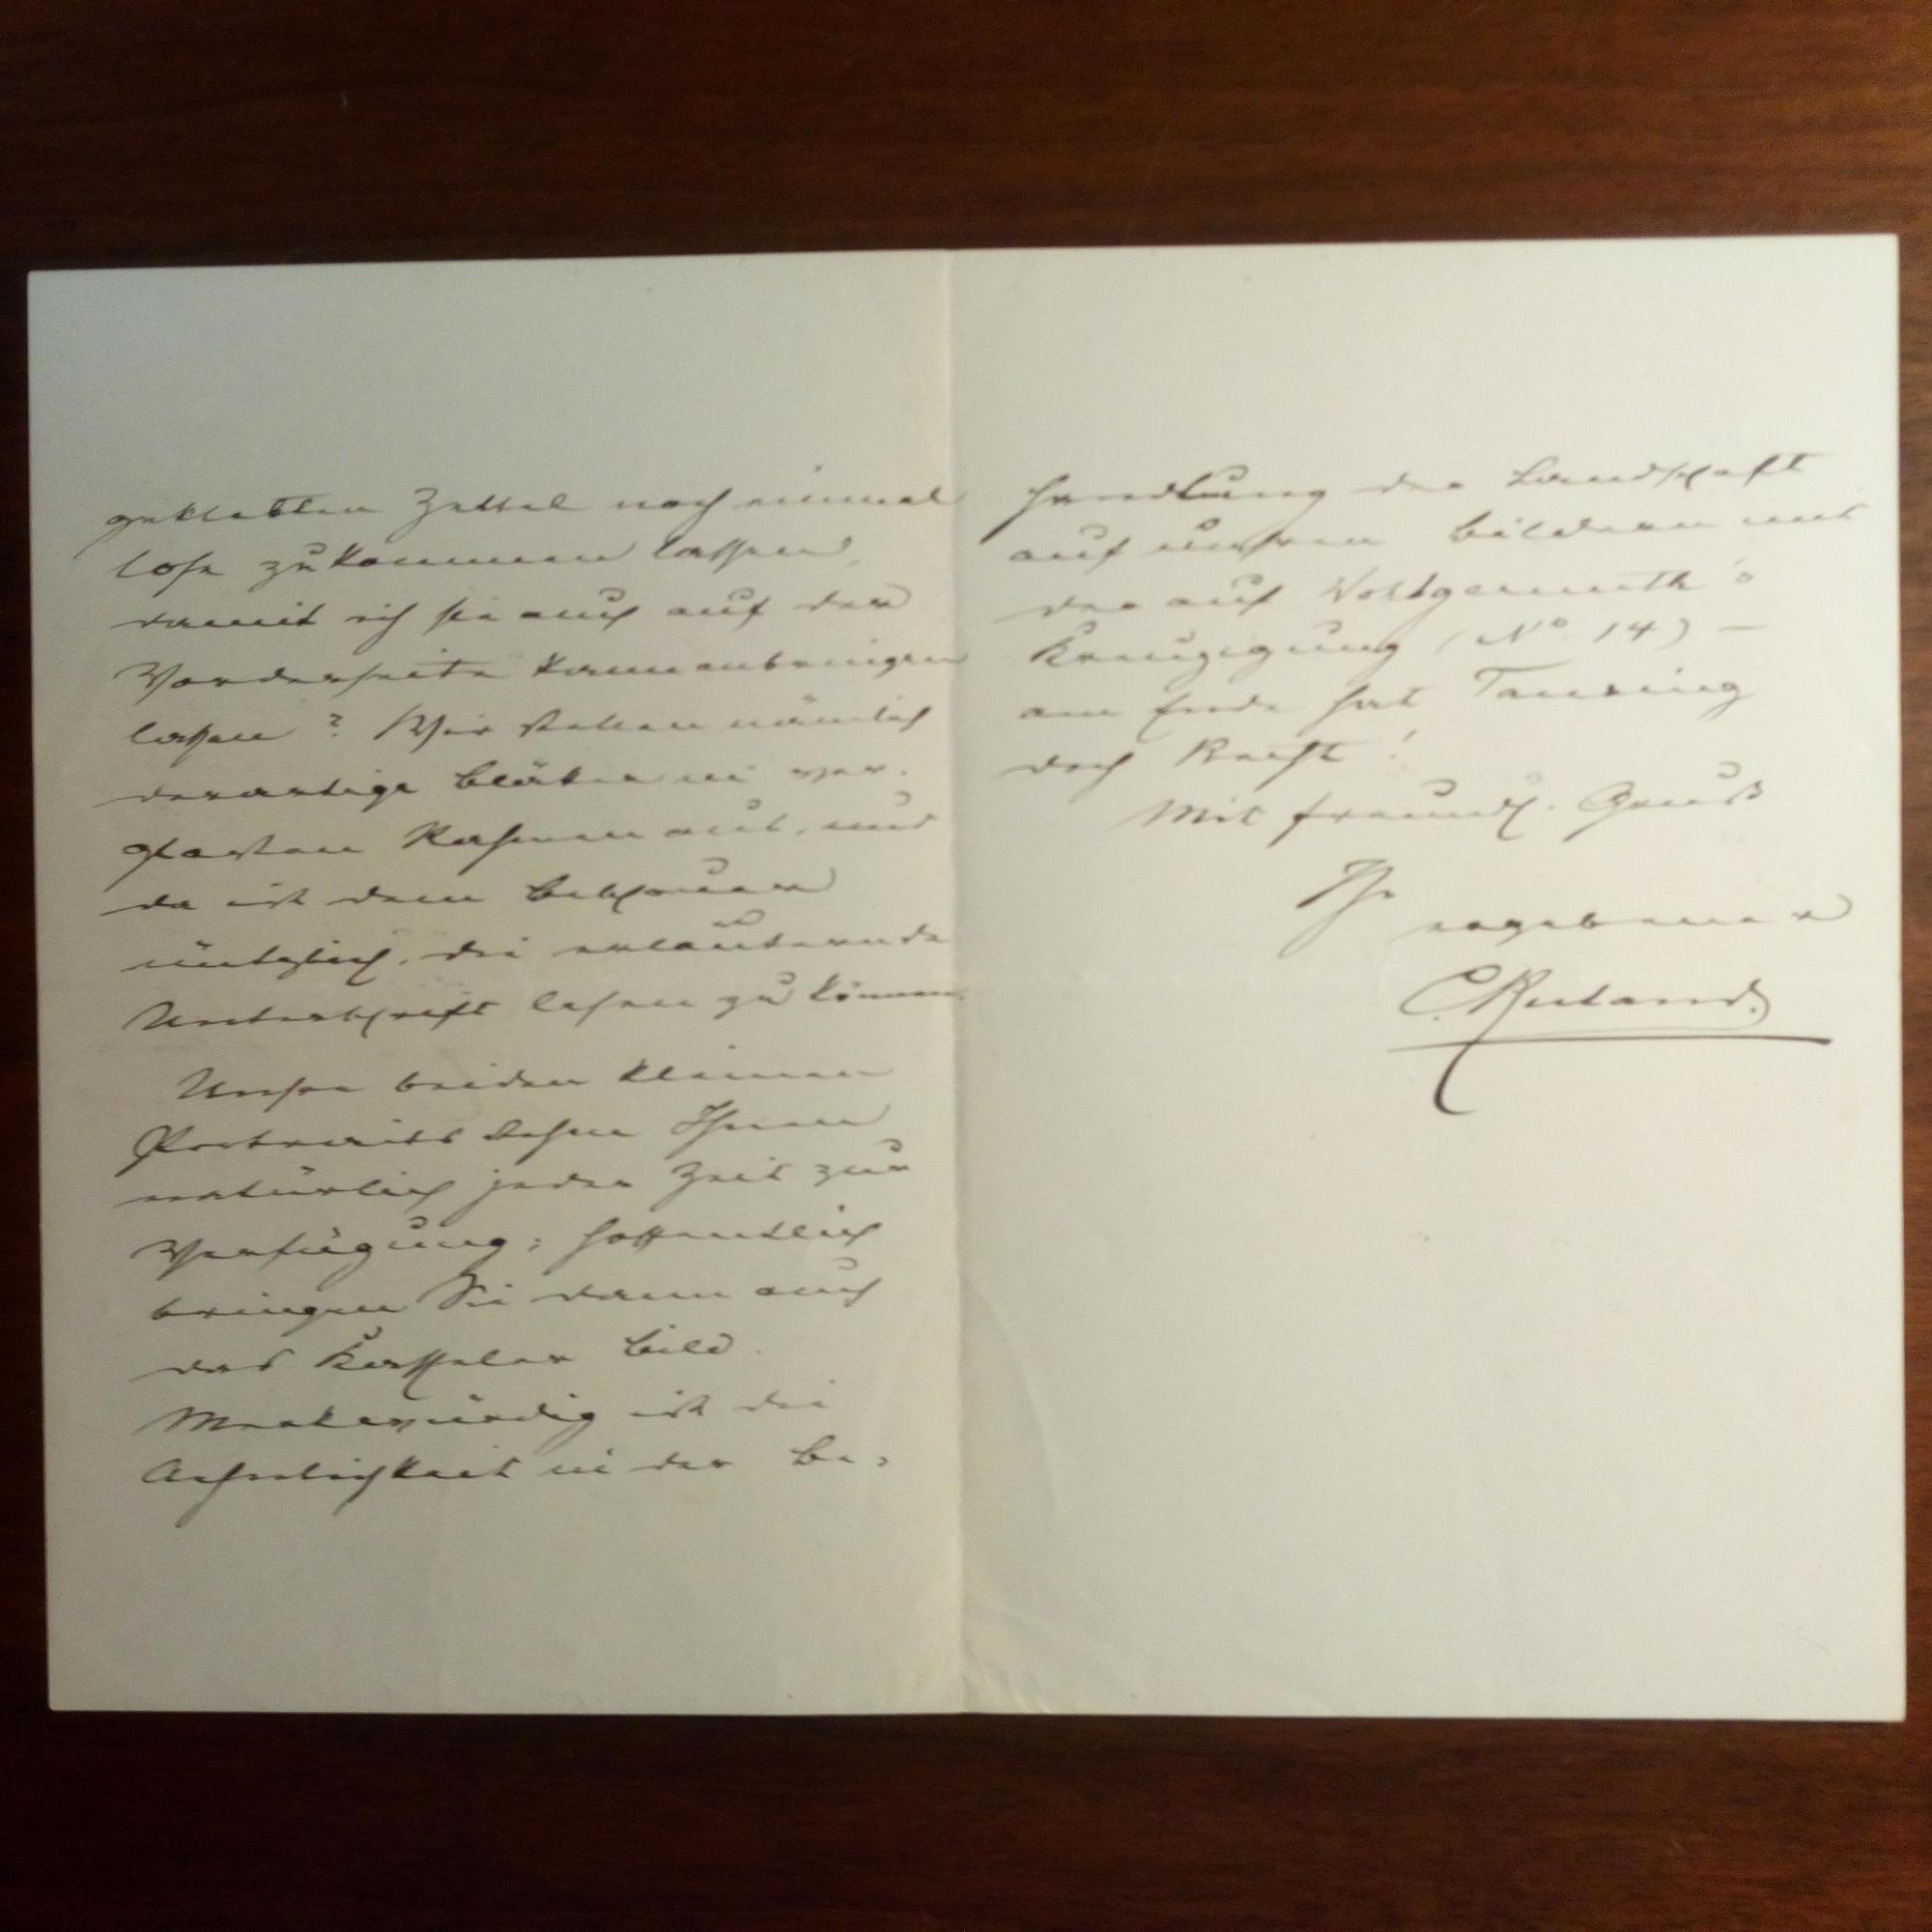 geklebten Zettel noch einmal
lose zukommen lassen,
damit ich sie auch auf der
Vorderseite kann anbringen
lassen? Wir stellen nämlich
derartige Blätter in ver-
glasten Rahmen aus, und
da ist dem Beschauer
nützlich, die erläuternde
Unterschrift lesen zu können.
Unsre beiden kleinen
Portraits stehn Ihnen
natürlich jeder Zeit zur
Verfügung; hoffentlich
bringen Sie dann auch
das Kasseler Bild.
Merkwürdig ist die
Aehnlichkeit in der Be-
handlung der Landschaft
auf unsren Bildern und
der auf Wohlgemuth's
Kreuzigung (No 14) –
am Ende hat Tausing
doch Recht!
Mit freundl. Gruß
Ihr
ergebener
C. Ruland.